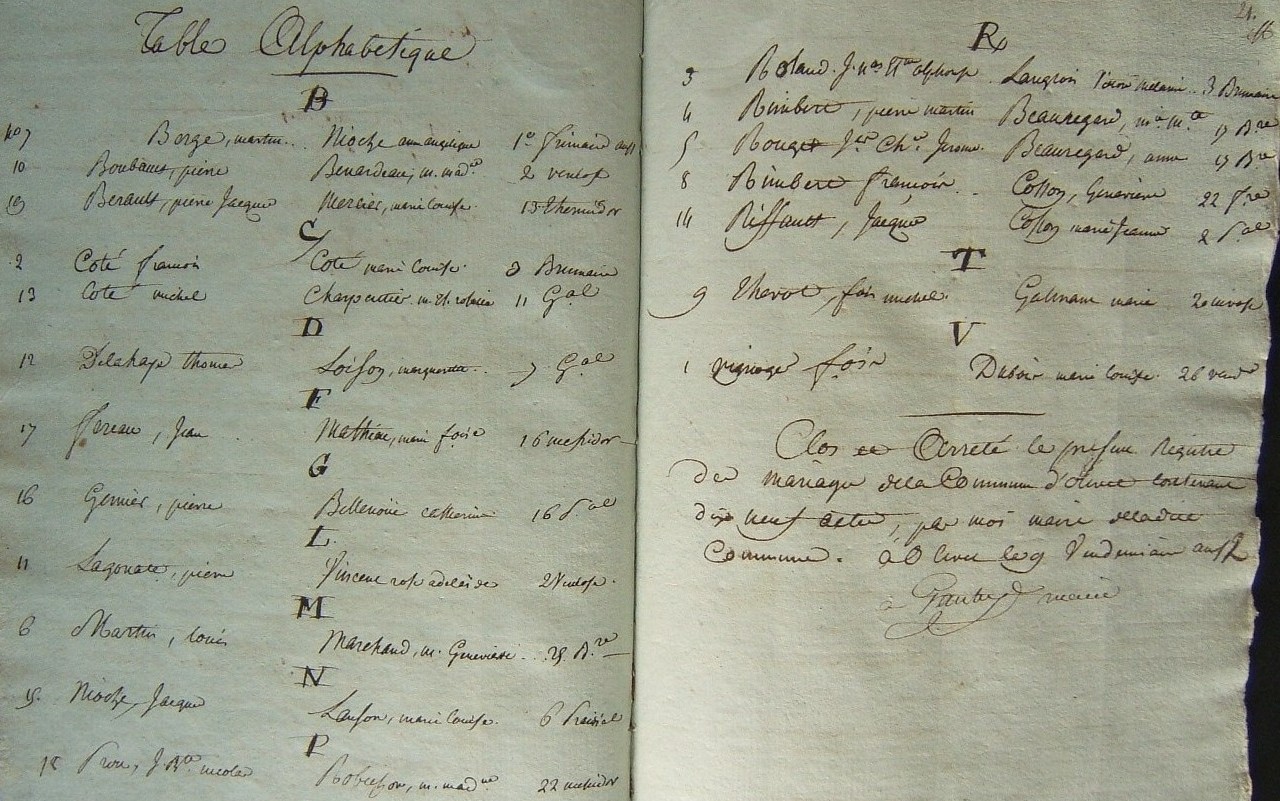 Table Alphabétique
B
No 7 Borge, martin .. Nioche anne angelique 1er frimaire
10 Boubault, pierre Benardeau, m. mad.ne 2 ventose
19 Berault, pierre Jacque Mercier, marie louise. 13 thermidor
C
2 Coté francois Coté marie louise. 3 Brumaire
13 Coté michel Charpentier m. 11 G.al
D
12 Delahaye thomas Loison, marguerite .. 7 G.al
F
17 Jean . Mathieu, marie foise 16 messidor
G
16 Gernier, pierre Bellenoüe catherine 16 P.al
L.
11 Lagoutte, pierre Vincent rose adelaïde 2 Ventose.
M
6 Martin, louis Marchand, m. Genevieve .. 25 B.re
N
15. Nioche, Jacque Lanson, marie louise. 6 Prairial
P
18 Prou, J. B.te nicolas m. mad.ne 22 messidor
21.
R
3 Roland. alphonse 3 Brumaire
4 Rimbert, pierre martin Beauregard, m.e 17 B.re
5 Rouget Ch.s Jerome. Beauregard, anne 17 B.re
8 Rimbert francois .. Cosson, Genevieve 22 f.re
14 Riffault, Jacque Cosson marie Jeanne 2 P.al
T
9 thevot, fois michel. marie 20 nivose
V
1 foise Dubois marie louise. 26 vend.re
Clos et Arreté le present Registre
des mariages de la Commune d'olivet contenant
dix neuf actes, par moi maire de ladite
Commune. a Olivet le 9 Vendemiaire an
maire